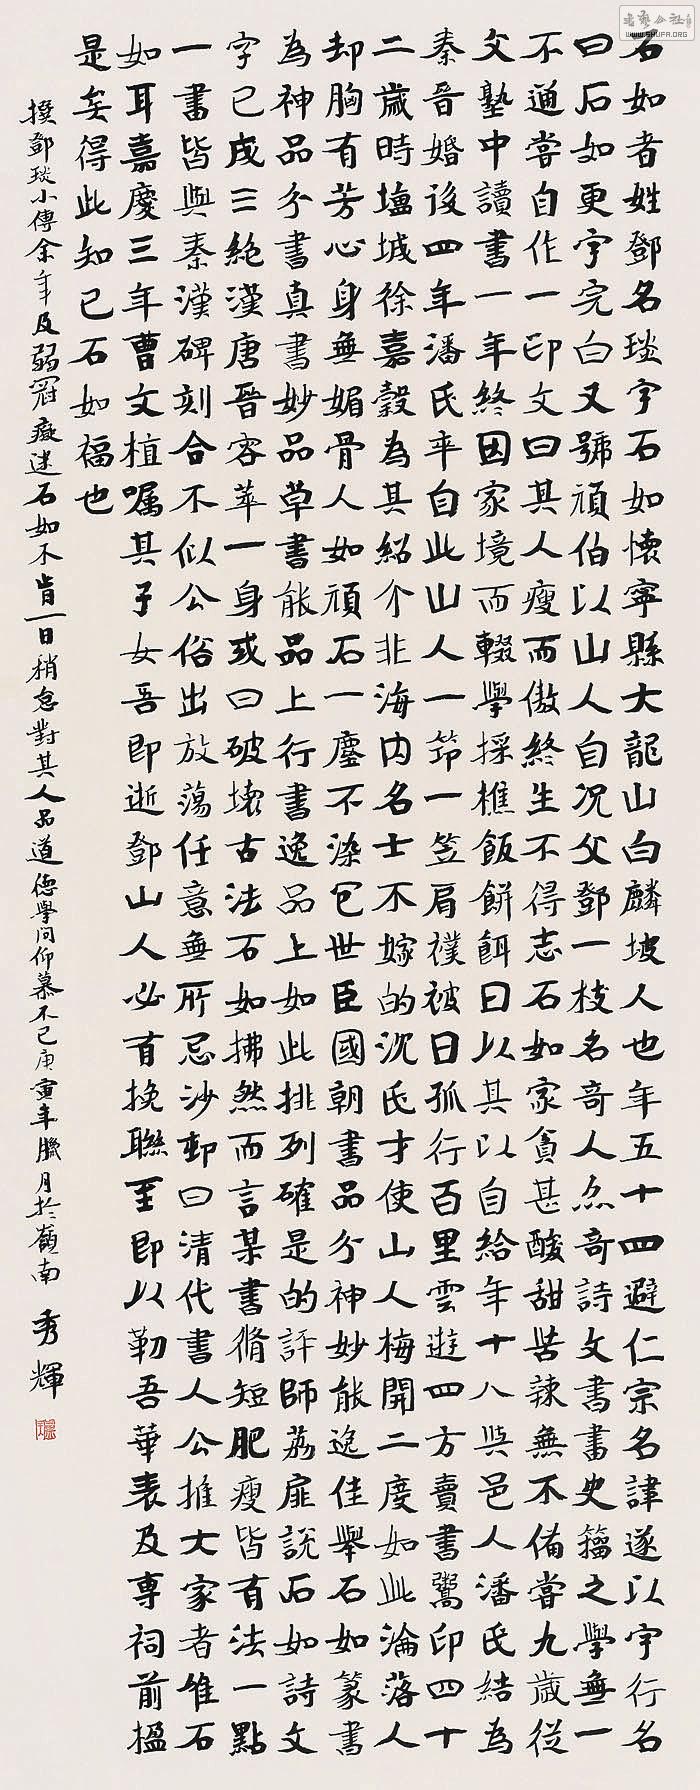 石如者姓鄧名琰字石如懷寧縣大龍山白麟坡人也年五十四避仁宗名諱遂以字行名
曰石如更字完白又號頑伯以山人自況父鄧一枝名奇人亦奇詩文書畫史籀之學無一
不通嘗自作一印文曰其人瘦而傲終生不得志石如家貧甚酸甜苦辣無不備嘗九歲從
父塾中讀書一年終因家境而輟學採樵飯餅餌日以其以自給年十八與邑人潘氏結為
秦晉婚後四年潘氏卒自此山人一筇一笠肩襆被日孤行百里雲遊四方賣書鬻印四十
二歲時塩城徐嘉穀為其紹介非海内名士不嫁的沈氏才使山人梅開二度如此淪落人
却胸有芳心身無媚骨人如頑石一塵不染包世臣國朝書品分神妙能逸佳舉石如篆書
為神品分書真書妙品草書能品上行書逸品上如此排列確是的評師荔扉說石如詩文
字已成三絶漢唐晉容萃一身或曰破壞古法石如拂然而言某書脩短肥瘦皆有法一點
一畫皆與秦漢碑刻合不似公俗出放蕩任意無所忌沙邨曰清代書人公推大家者惟石
如耳嘉慶三年曹文植囑其子女吾即逝鄧山人必有挽聯至即以勒吾華表及專祠前楹
是矣得此知己石如福也
撰鄧琰小傳余年及弱冠癡迷石如不肯一日稍怠對其人品道德學問仰慕不已庚寅年臘月於嶺南 秀輝
书艺公社
WWW.SHUFA.ORG